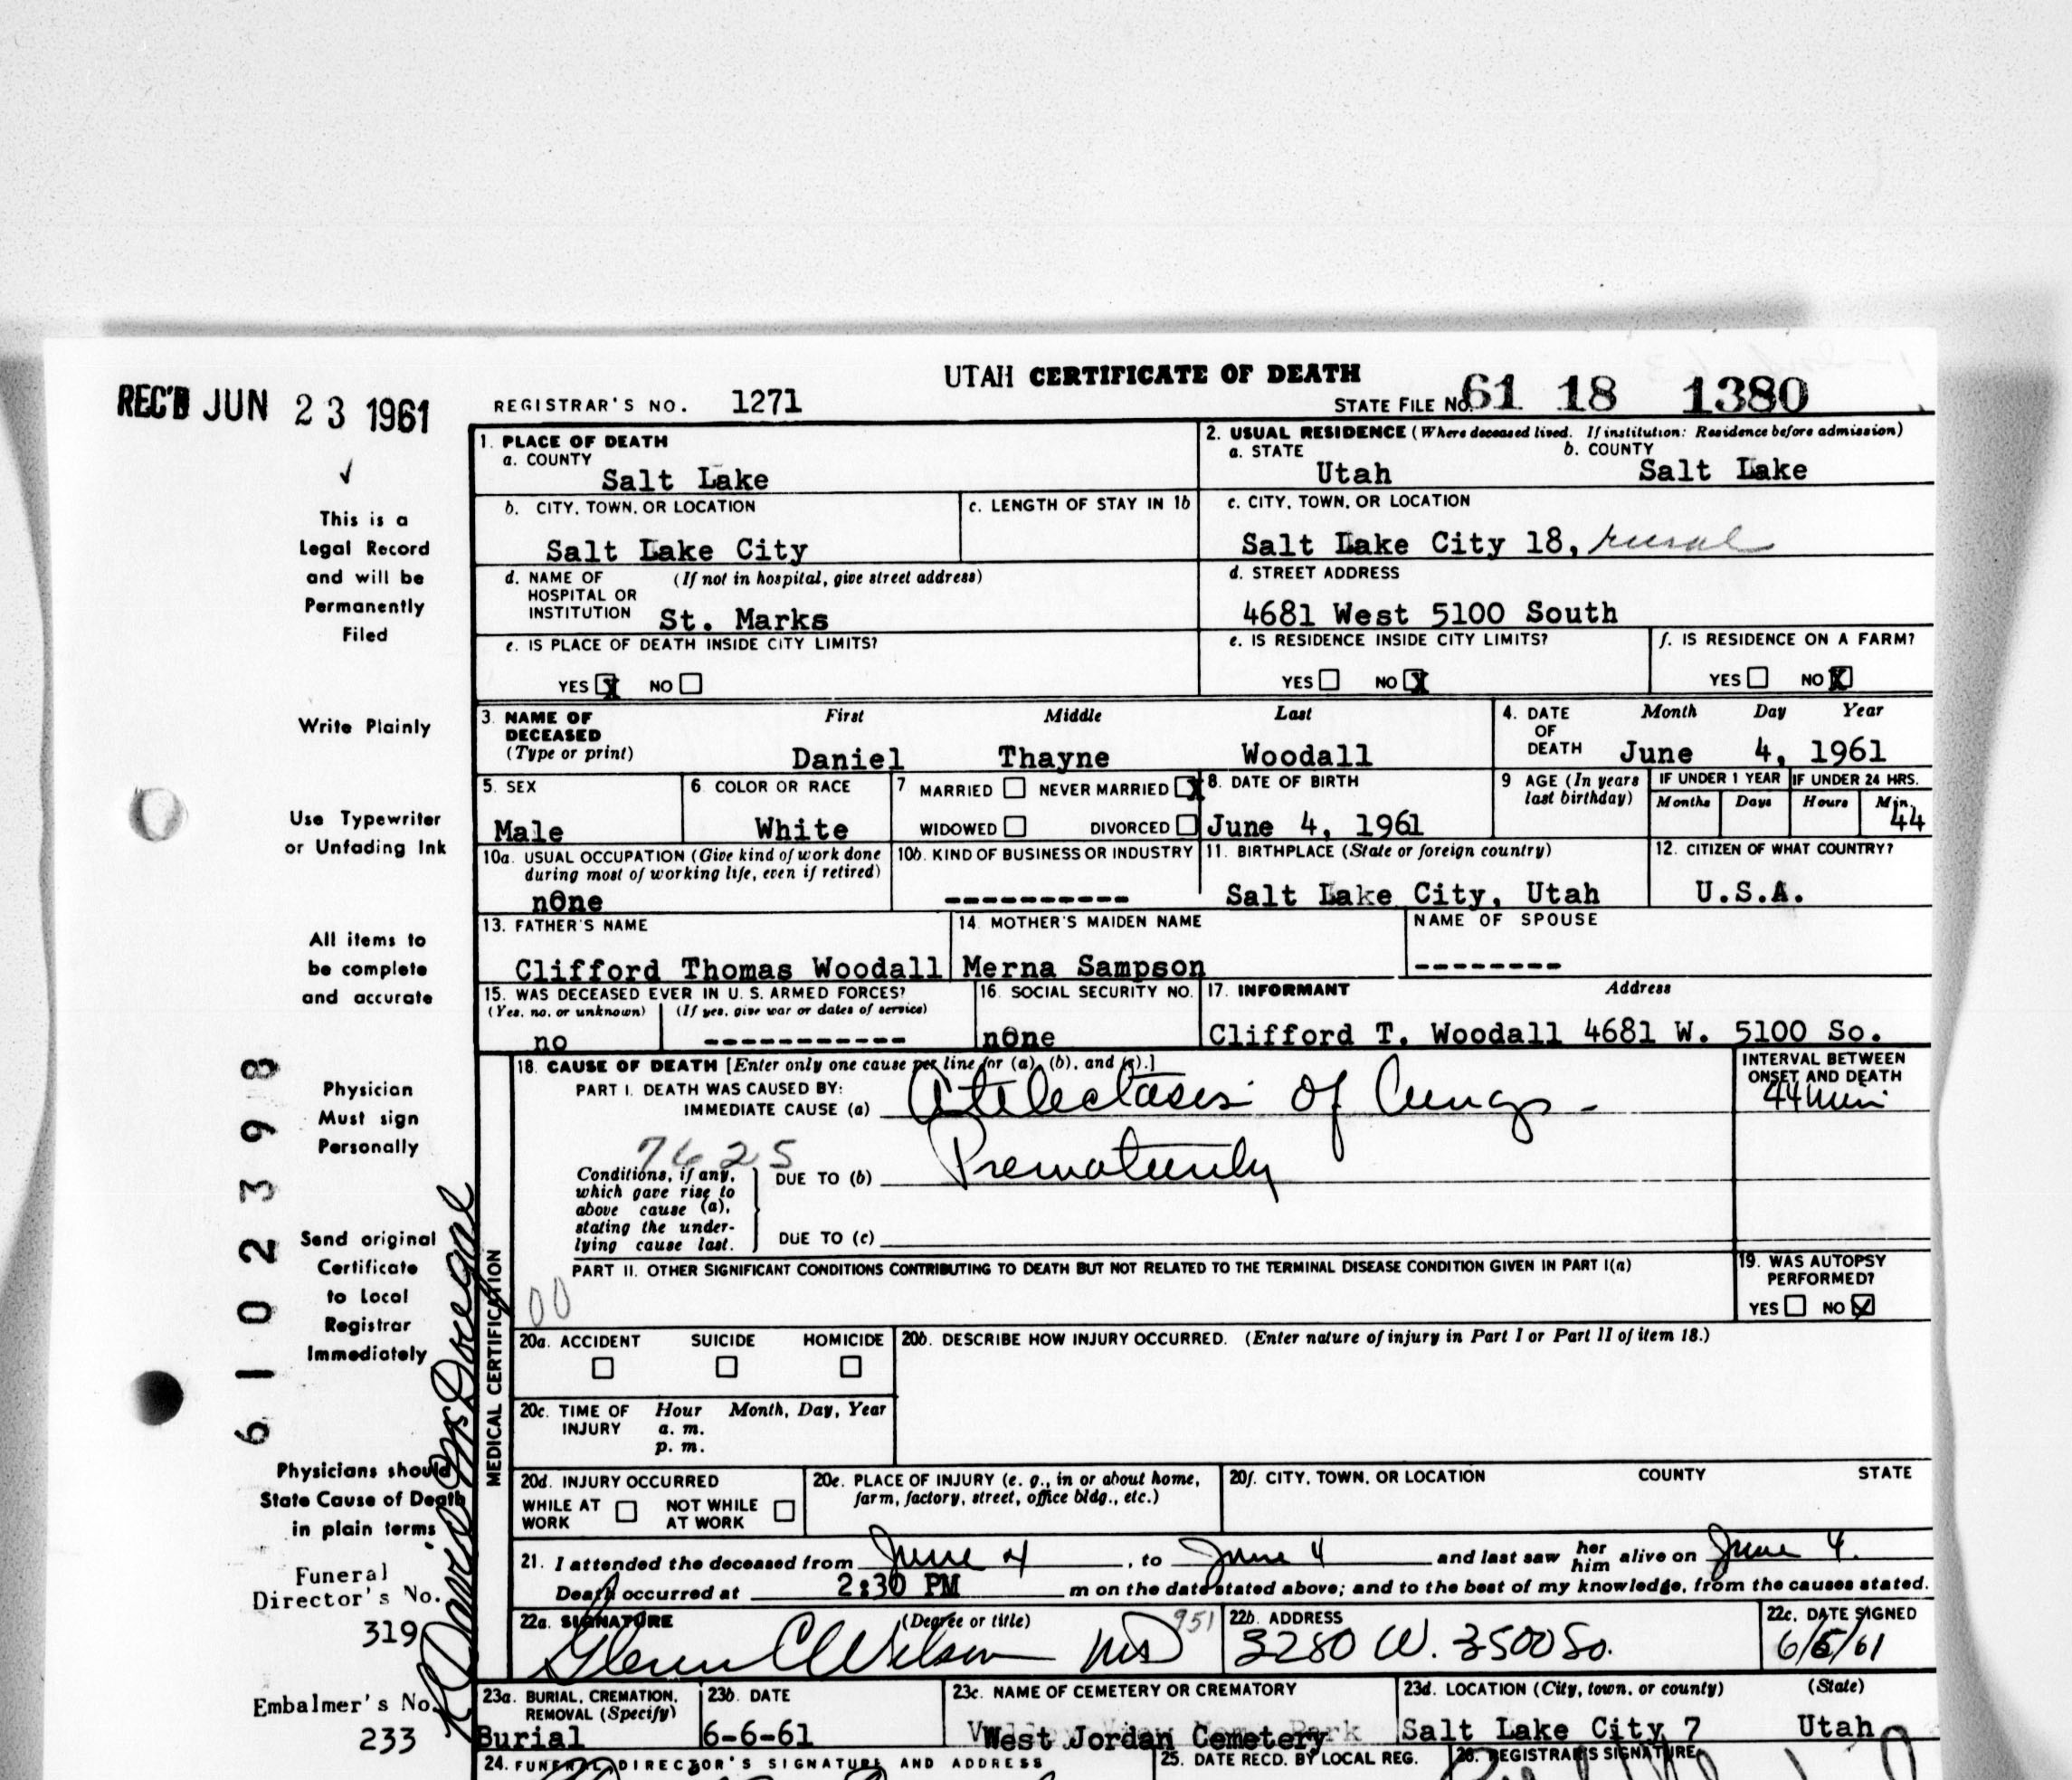 UTAH CERTIFICATE OF DEATH
REC'D JUN 23 1961
REGISTRAR'S NO. 1271
STATE FILE NO. 61 18 1380
This is a
Legal Record
and will be
Permanently
Filed
Write Plainly
Use Typewriter
or Unfading Ink
All items to
be complete
and accurate
Physician
Must sign
Personally
Send original
Certificate
to Local
Registrar
Immediately
Physicians should
State Cause of Death
in plain terms
Funeral
Director's No.
319
Embalmer's No.
233
6102398
1. PLACE OF DEATH
a. COUNTY
Salt Lake
2. USUAL RESIDENCE (Where deceased lived. If institution: Residence before admission)
a. STATE b. COUNTY
Utah Salt Lake
b. CITY, TOWN, OR LOCATION
Salt Lake City
c. LENGTH OF STAY IN 1b
c. CITY, TOWN, OR LOCATION
Salt Lake City 18, rural
d. NAME OF (If not in hospital, give street address)
HOSPITAL OR
INSTITUTION St. Marks
d. STREET ADDRESS
4681 West 5100 South
e. IS PLACE OF DEATH INSIDE CITY LIMITS?
YES X NO
e. IS RESIDENCE INSIDE CITY LIMITS?
YES NO X
f. IS RESIDENCE ON A FARM?
YES NO X
3. NAME OF DECEASED (Type or print)
First Middle Last
Daniel Thayne Woodall
4. DATE OF DEATH
Month Day Year
June 4, 1961
5. SEX
Male
6. COLOR OR RACE
White
7 MARRIED NEVER MARRIED X
WIDOWED DIVORCED
8. DATE OF BIRTH
June 4, 1961
9 AGE (In years last birthday)
IF UNDER 1 YEAR IF UNDER 24 HRS.
Months Days Hours Min.
44
10a. USUAL OCCUPATION (Give kind of work done
during most of working life, even if retired)
none
10b. KIND OF BUSINESS OR INDUSTRY
----------
11. BIRTHPLACE (State or foreign country)
Salt Lake City, Utah
12. CITIZEN OF WHAT COUNTRY?
U.S.A.
13. FATHER'S NAME
Clifford Thomas Woodall
14. MOTHER'S MAIDEN NAME
Merna Sampson
NAME OF SPOUSE
--------
15. WAS DECEASED EVER IN U. S. ARMED FORCES?
(Yes, no, or unknown) (If yes, give war or dates of service)
no -----------
16. SOCIAL SECURITY NO.
none
17. INFORMANT Address
Clifford T. Woodall 4681 W. 5100 So.
MEDICAL CERTIFICATION
18. CAUSE OF DEATH [Enter only one cause per line for (a), (b), and (c).]
PART I. DEATH WAS CAUSED BY:
IMMEDIATE CAUSE (a) Atelectasis of Lungs -
INTERVAL BETWEEN
ONSET AND DEATH
44 min
7625
Conditions, if any,
which gave rise to
above cause (a),
stating the under-
lying cause last.
DUE TO (b) Prematurity
DUE TO (c)
PART II. OTHER SIGNIFICANT CONDITIONS CONTRIBUTING TO DEATH BUT NOT RELATED TO THE TERMINAL DISEASE CONDITION GIVEN IN PART I(a)
00
19. WAS AUTOPSY
PERFORMED?
YES NO ✓
20a. ACCIDENT SUICIDE HOMICIDE
20b. DESCRIBE HOW INJURY OCCURRED. (Enter nature of injury in Part I or Part II of item 18.)
20c. TIME OF INJURY
Hour Month, Day, Year
a. m.
p. m.
20d. INJURY OCCURRED
WHILE AT WORK NOT WHILE AT WORK
20e. PLACE OF INJURY (e. g., in or about home,
farm, factory, street, office bldg., etc.)
20f. CITY, TOWN, OR LOCATION COUNTY STATE
21. I attended the deceased from June 4, to June 4 and last saw her him alive on June 4.
Death occurred at 2:30 PM m on the date stated above; and to the best of my knowledge, from the causes stated.
22a. SIGNATURE (Degree or title) 951
Glenn C Wilson MD
22b. ADDRESS
3280 W. 3500 So.
22c. DATE SIGNED
6/5/61
23a. BURIAL, CREMATION,
REMOVAL (Specify)
Burial
23b. DATE
6-6-61
23c. NAME OF CEMETERY OR CREMATORY
West Jordan Cemetery
23d. LOCATION (City, town, or county) (State)
Salt Lake City 7 Utah
24. FUNERAL DIRECTOR'S SIGNATURE AND ADDRESS
25. DATE RECD. BY LOCAL REG.
26. REGISTRAR'S SIGNATURE